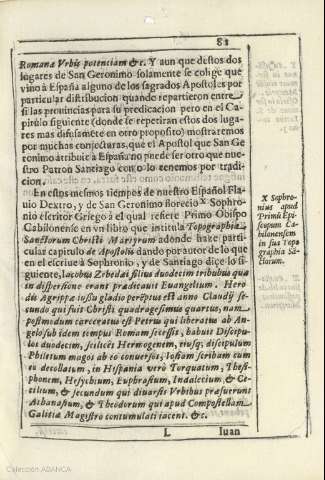 81
Romana Vrbis potentiam &c. Y aun que destos dos
lugares de San Geronimo solamente se colige que
vino à España alguno de los sagrados Apostoles por
particular distribucion quando repartieron entre
si las prouincias para su predicacion pero en el Ca-
pitulo siguiente (donde se repetiran estos dos luga-
res mas difusamẽte en otro proposito) mostraremos
por muchas conjecturas, que el Apostol que San Ge
ronimo atribuie a España no puede ser otro que nue-
stro Patron Santiago como lo tenemos por tradi-
cion.
En estos mesmos tiempos de nuestro Español Fla-
uio Dextro, y de San Geronimo florecio X Sophro-
nio escritor Griego à el qual refiere Primo Obispo
Cabilonense en vn libro que intitula Topographia
Sanctorum Christi Martyrum adonde haze parti-
cular capitulo de Apostolis dando por autor de lo que
en el escriue à Sophronio, y de Santiago dice lo si-
guiente, Iacobus Zebedæi filius duodecim tribubus quæ
in dispersione erant prædicauit Euangelium. Hero
dis Agrippæ iussu gladio peremptus est anno Claudij se-
cundo qui fuit Christi quadragesimus quartus, nam
postmodum carceratus est Petrus qui liberatus ab An-
gelo sub idem tempus Romam secessit, habuit Discipu-
los duodecim, scilicet Hermogenem, eiusq; discipulum
Philetum magos ab eo conuersos, Iosiam scribam cum
eo decollatum, in Hispania verò Torquatum, Thesi-
phonem, Hesychium, Euphrasium, Indaletium & Ce-
cilium, & secundum qui diuersis Vrbibus præfuerunt
Athanasium, & Theodorum qui apud Compostellam
Galitiæ Magistro contumulati iacent. &c.
L Iuan
X Sophro-
nius apud
Primũ Epi-
scopum Ca-
bilonensem
in sua Topo
graphia Sã-
ctorum.
Colección ADANCA